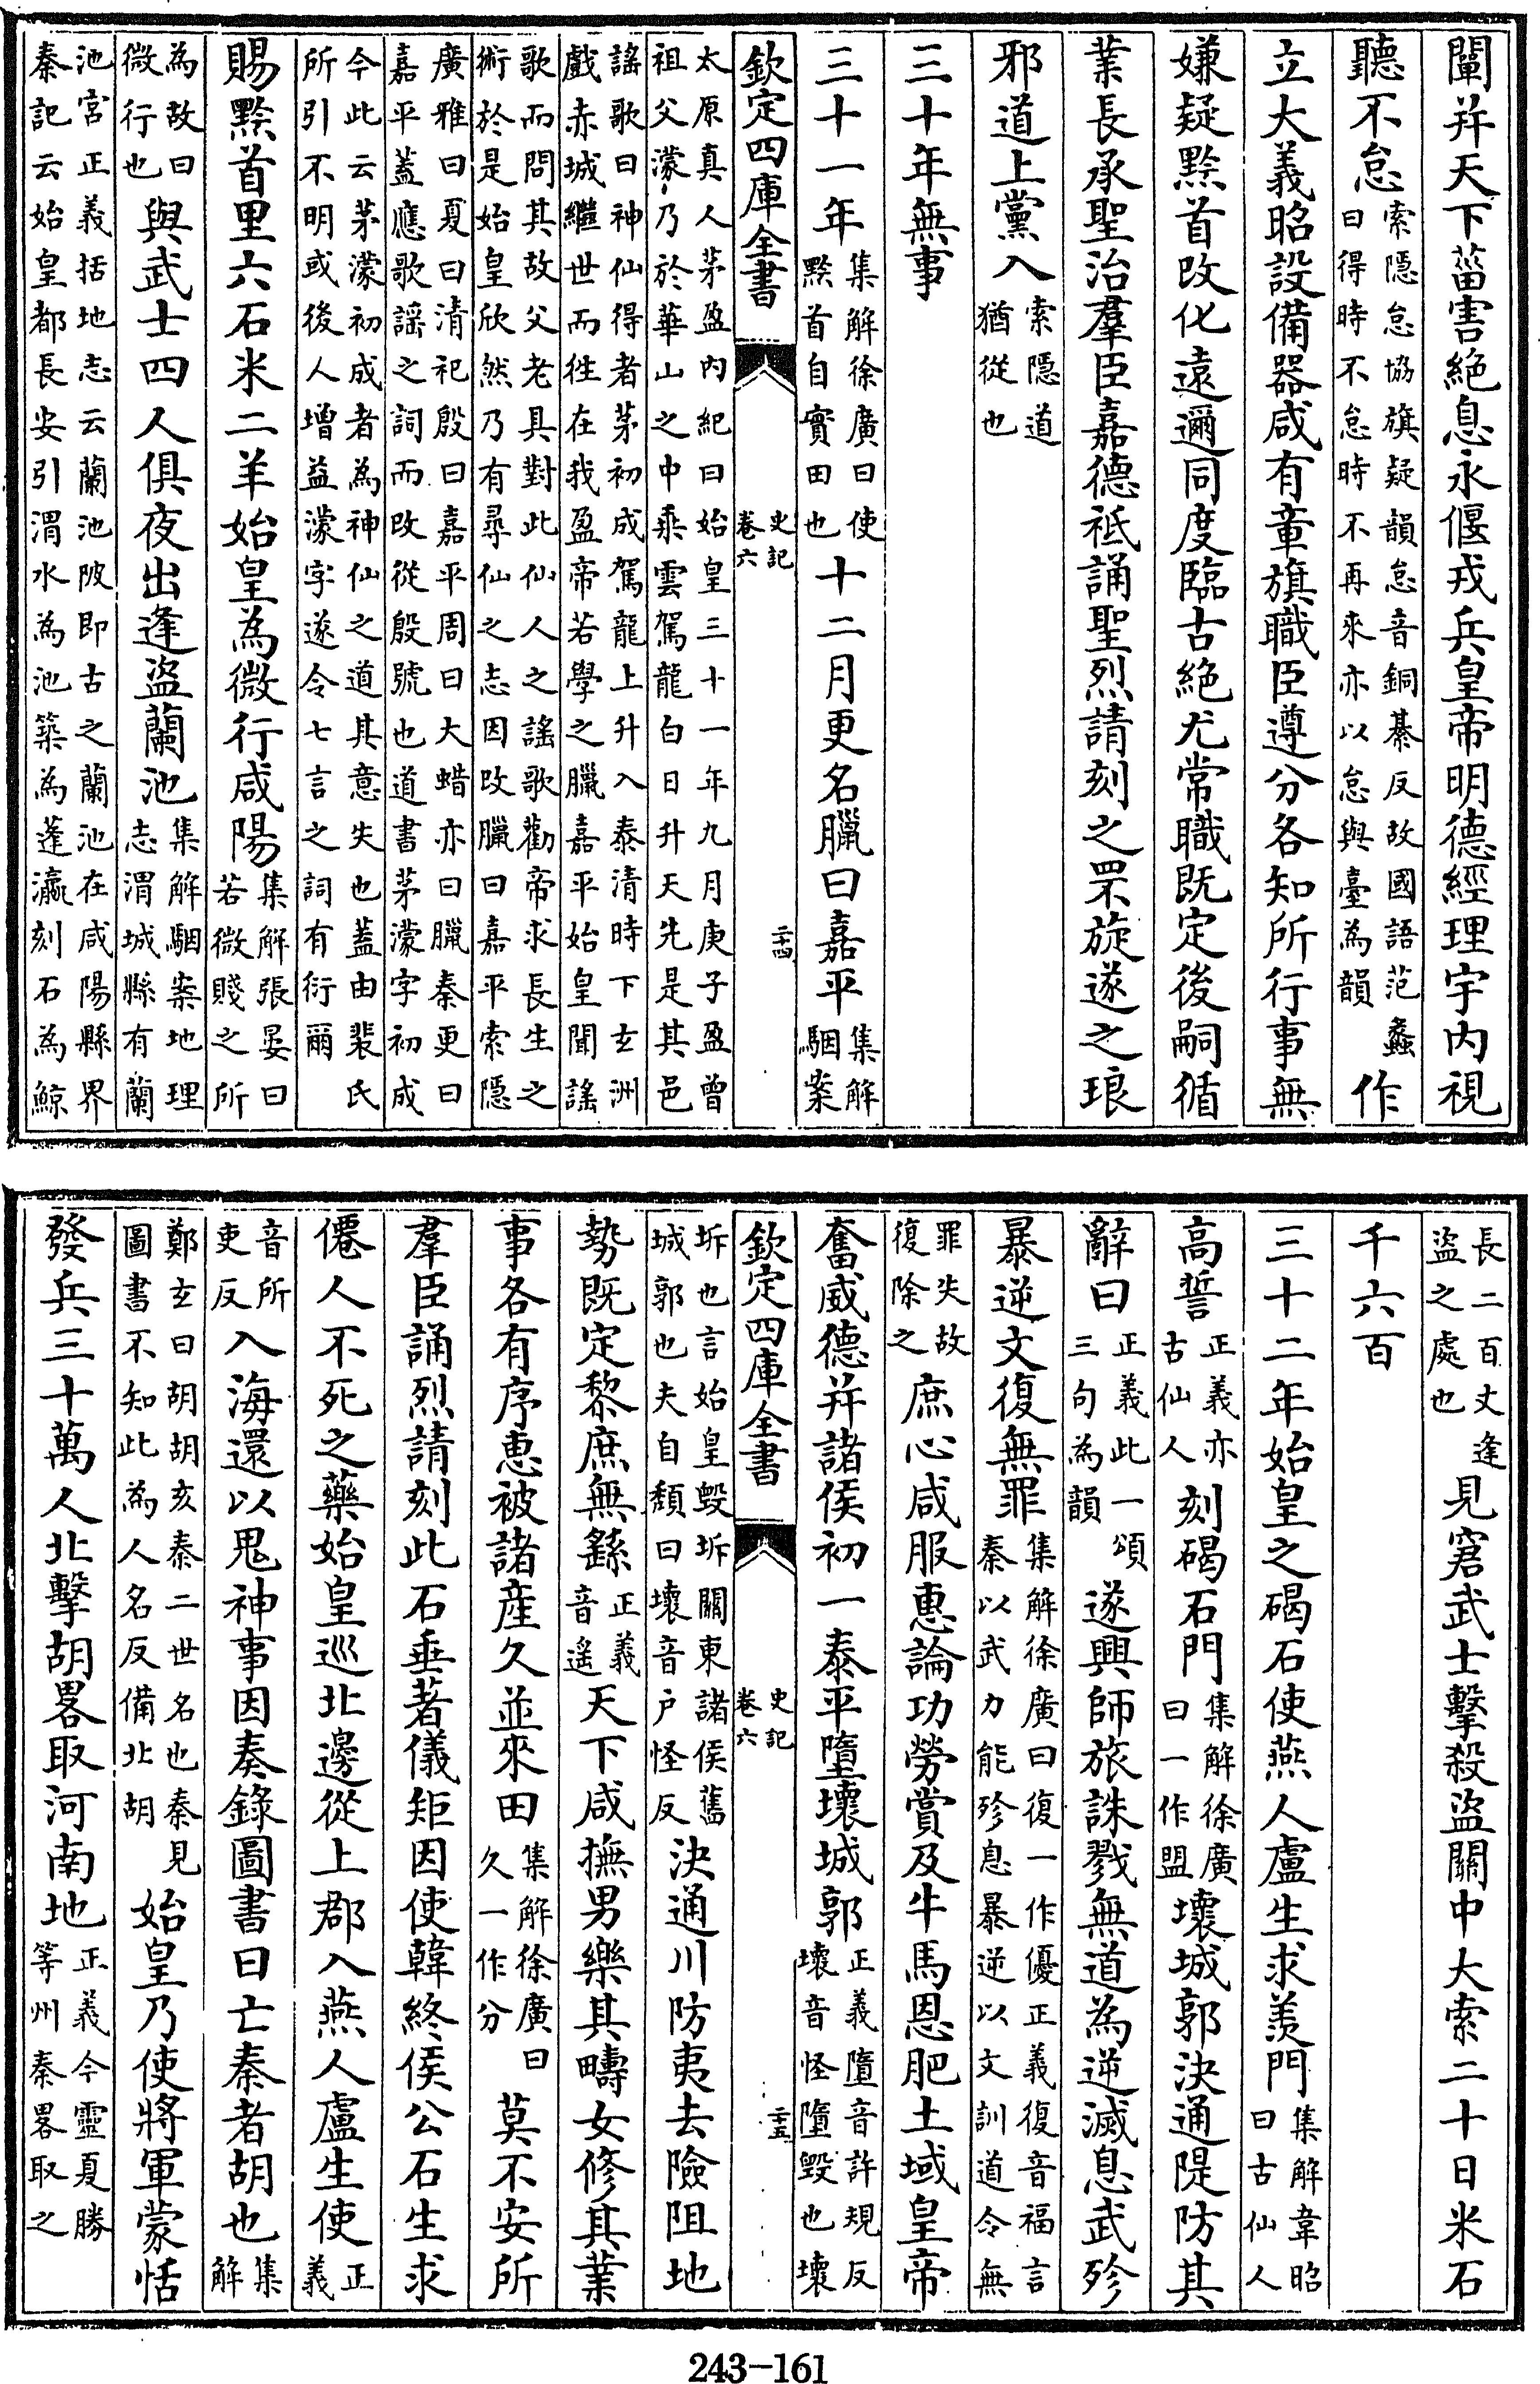 闡并天下菑害絶息永偃戎兵皇帝明德經理宇内視
聽不怠索隱怠協旗疑韻怠音銅綦反故國語范蠡曰得時不怠時不再來亦以怠與臺為韻作
立大義昭設備器咸有章旗職臣遵分各知所行事無
嫌疑黔首改化遠邇同度臨古絶尤常職既定後嗣循
業長承聖治羣臣嘉德祗誦聖烈請刻之罘旋遂之琅
邪道上黨入索隱道猶從也
三十年無事
三十一年集解徐廣曰使黔首自實田也十二月更名臘曰嘉平集解駰案
欽定四庫全書 史記卷六 二十四
太原真人茅盈内紀曰始皇三十一年九月庚子盈曾祖父濛乃於華山之中乘雲駕龍白日升天先是其邑
謡歌曰神仙得者茅初成駕龍上升入泰清時下玄洲戲赤城繼世而徃在我盈帝若學之臘嘉平始皇聞謡
歌而問其故父老具對此仙人之謡歌勸帝求長生之術於是始皇欣然乃有尋仙之志因改臘曰嘉平索隱
廣雅曰夏曰清祀殷曰嘉平周曰大蜡亦曰臘秦更曰嘉平蓋應歌謡之詞而改從殷號也道書茅濛字初成
今此云茅濛初成者為神仙之道其意失也蓋由裴氏所引不明或後人增益濛字遂令七言之詞有衍爾
賜黔首里六石米二羊始皇為微行咸陽集解張晏曰若微賤之所
為故曰微行也與武士四人俱夜出逢盗蘭池集解駰案地理志渭城縣有蘭
池宫正義括地志云蘭池陂即古之蘭池在咸陽縣界秦記云始皇都長安引渭水為池築為蓬瀛刻石為鯨
長二百丈逢盗之處也見窘武士擊殺盗關中大索二十日米石
千六百
三十二年始皇之碣石使燕人盧生求羨門集解韋昭曰古仙人
高誓正義亦古仙人刻碣石門集解徐廣曰一作盟壞城郭決通隄防其
辭曰正義此一頌三句為韻遂興師旅誅戮無道為逆滅息武殄
暴逆文復無罪集解徐廣曰復一作優正義復音福言秦以武力能殄息暴逆以文訓道令無
罪失故復除之庶心咸服惠論功勞賞及牛馬恩肥土域皇帝
奮威德并諸侯初一泰平墮壞城郭正義墮音許規反壞音怪墮毁也壞
欽定四庫全書 史記卷六 二十五
坼也言始皇毁坼關東諸侯舊城郭也夫自頽曰壞音户怪反決通川防夷去險阻地
勢既定黎庶無繇正義音遥天下咸撫男樂其疇女修其業
事各有序恵被諸産久並來田集解徐廣曰久一作分莫不安所
羣臣誦烈請刻此石垂著儀矩因使韓終侯公石生求
僊人不死之藥始皇巡北邊從上郡入燕人盧生使正義
音所吏反入海還以鬼神事因奏錄圖書曰亡秦者胡也集解
鄭玄曰胡胡亥秦二世名也秦見圖書不知此為人名反備北胡始皇乃使將軍蒙恬
發兵三十萬人北擊胡畧取河南地正義今靈夏勝等州秦畧取之
243-161